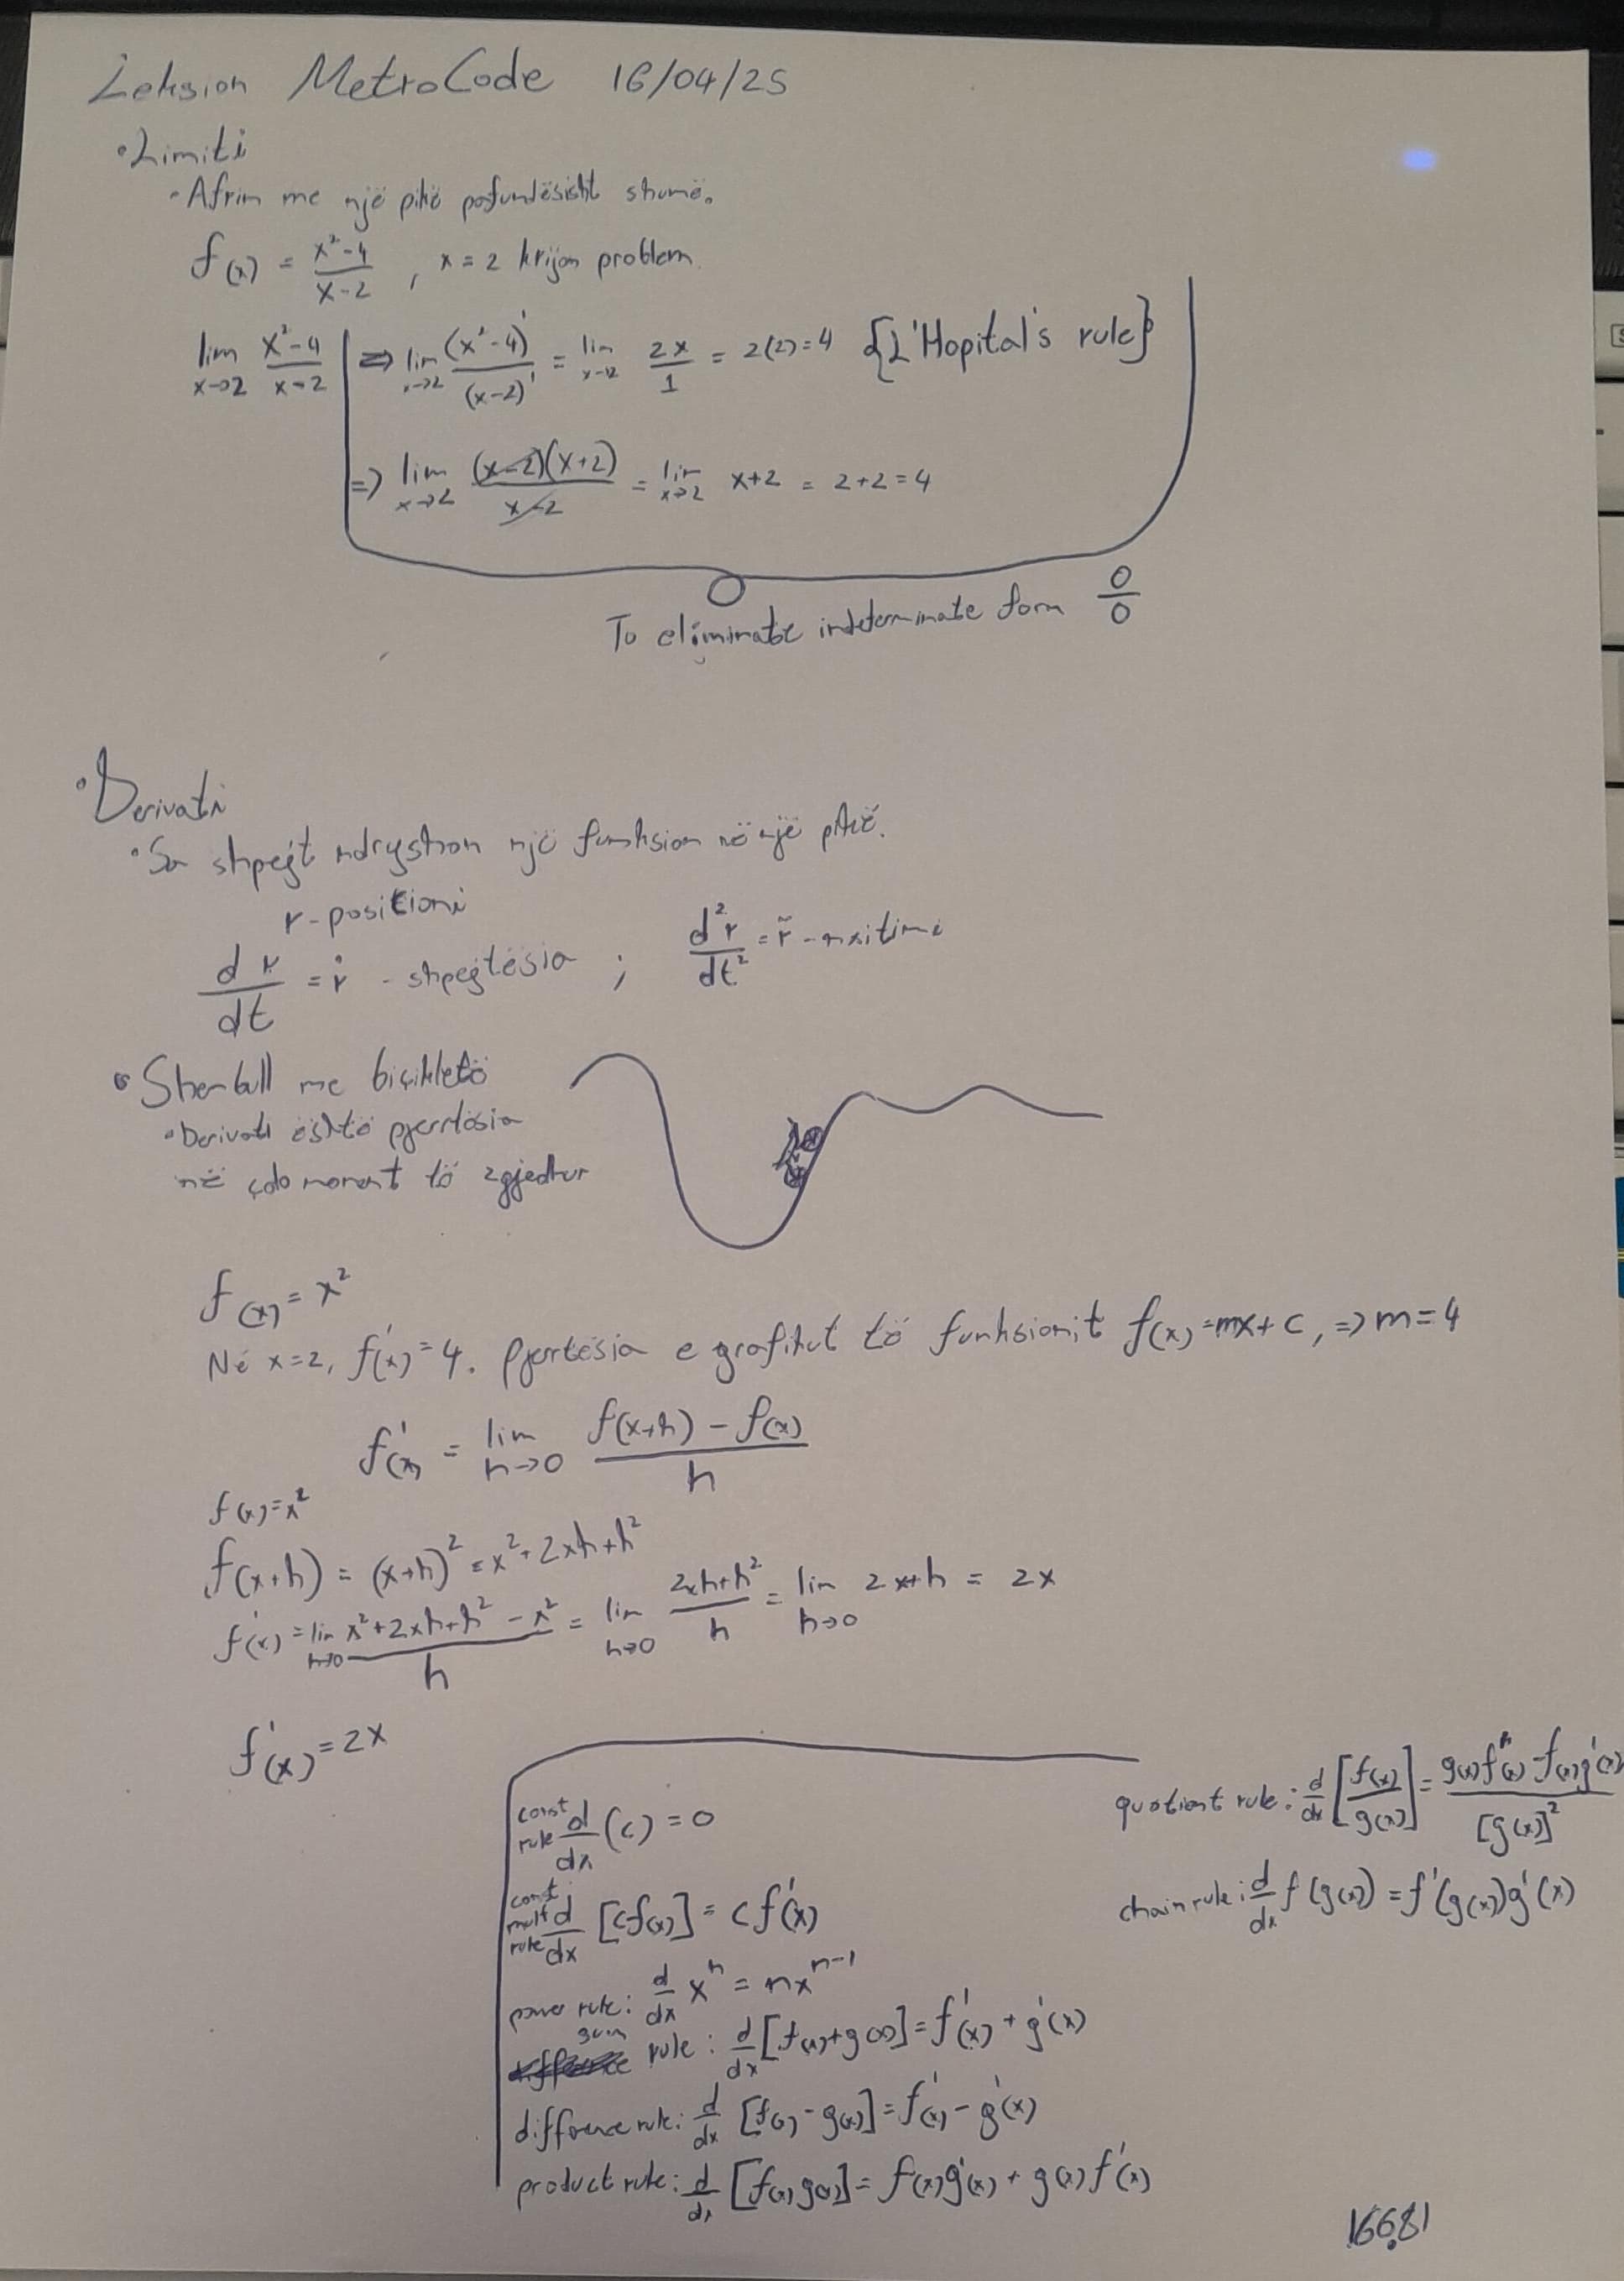 Leksion MetroCode 16/04/25
• Limiti
• Afrim me një pikë pafundësisht shumë.
f(x) = (x²-4)/(x-2) , x = 2 krijon problem.
lim x→2 (x²-4)/(x-2) => lim x→2 (x²-4)'/(x-2)' = lim x→2 2x/1 = 2(2)=4 {L'Hopital's rule}
=> lim x→2 (x-2)(x+2)/(x-2) = lim x→2 x+2 = 2+2=4
To eliminate indeterminate form 0/0
• Derivati
• Sa shpejt ndryshon një funksion në një pikë.
r-positioni
dr/dt = ṙ - shpejtësia ; d²r/dt² = r̈ - nxitimi
• Shembull me biçikletë
• Derivati është pjerrtësia
në çdo moment të zgjedhur
f(x) = x²
Në x=2, f'(x)=4. Pjerrtësia e grafikut të funksionit f(x)=mx+c, => m=4
f'(x) = lim h→0 (f(x+h) - f(x))/h
f(x)=x²
f(x+h) = (x+h)² = x²+2xh+h²
f'(x) = lim h→0 (x²+2xh+h²-x²)/h = lim h→0 (2xh+h²)/h = lim h→0 2x+h = 2x
f'(x)=2x
const rule d/dx (c) = 0
const mult rule d/dx [cf(x)] = cf'(x)
power rule: d/dx xⁿ = nxⁿ⁻¹
sum rule: d/dx [f(x)+g(x)] = f'(x) + g'(x)
difference rule: d/dx [f(x)-g(x)] = f'(x) - g'(x)
product rule: d/dx [f(x)g(x)] = f(x)g'(x) + g(x)f'(x)
quotient rule: d/dx [f(x)/g(x)] = (g(x)f'(x)-f(x)g'(x))/[g(x)]²
chain rule: d/dx f(g(x)) = f'(g(x))g'(x)